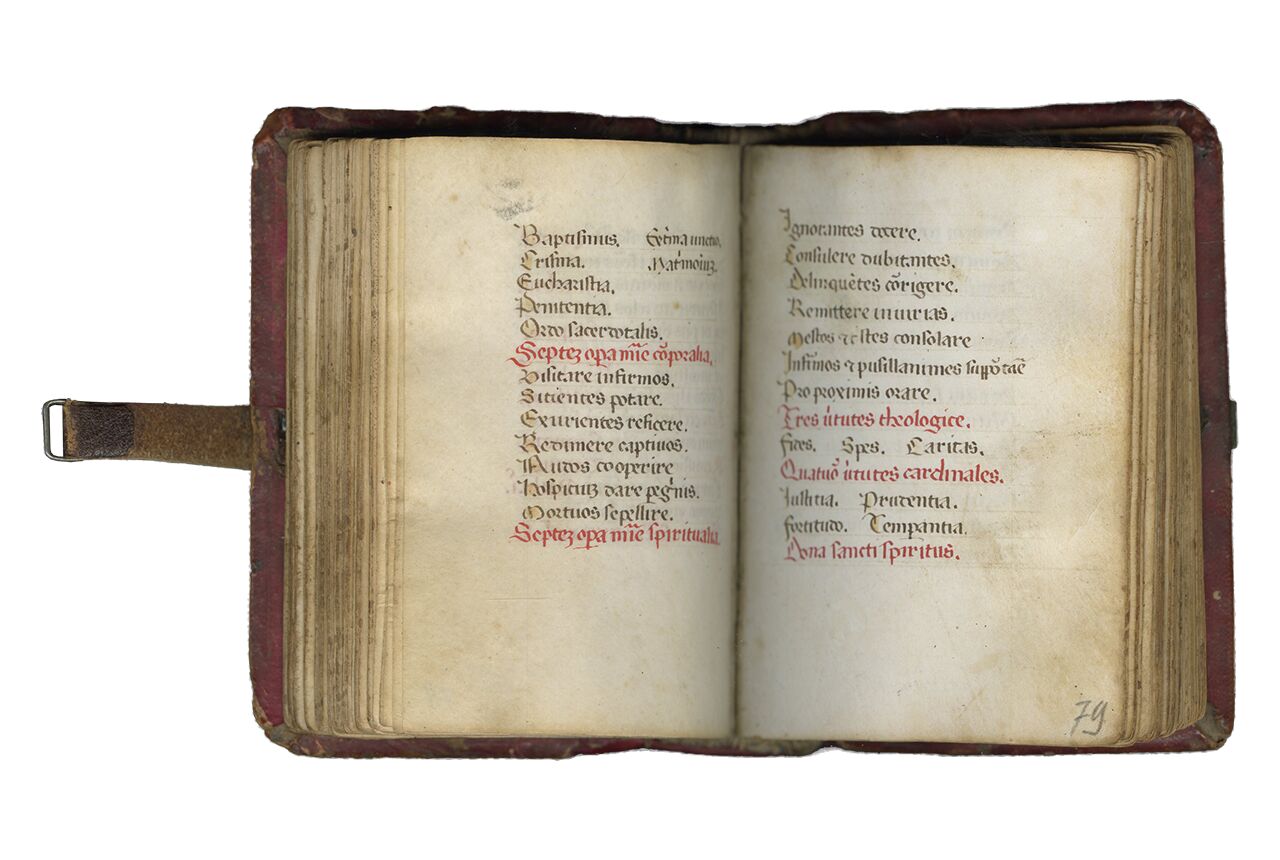 Baptismus. Extrema unctio.
Crisma. Matrimoniuz.
Eucharistia.
Penitentia.
Ordo sacerdotalis.
Septez opa mie corporalia.
Visitare infirmos.
Sitientes potare.
Exurientes reficere.
Redimere captiuos.
Nudos cooperire
Hospitiuz dare pegrinis.
Mortuos sepellire.
Septez opa mie spiritualia.
Ignorantes docere.
Consulere dubitantes.
Delinquētes cōrigere.
Remittere iniurias.
Mestos consolare
Infirmos & pusillanimes
Pro proximis orare.
Tres ututes theologice.
Fides. Spes. Caritas.
Quatuor ututes cardinales.
Iustitia. Prudentia.
Fortitudo. Tempantia.
Dona sancti spiritus.
79